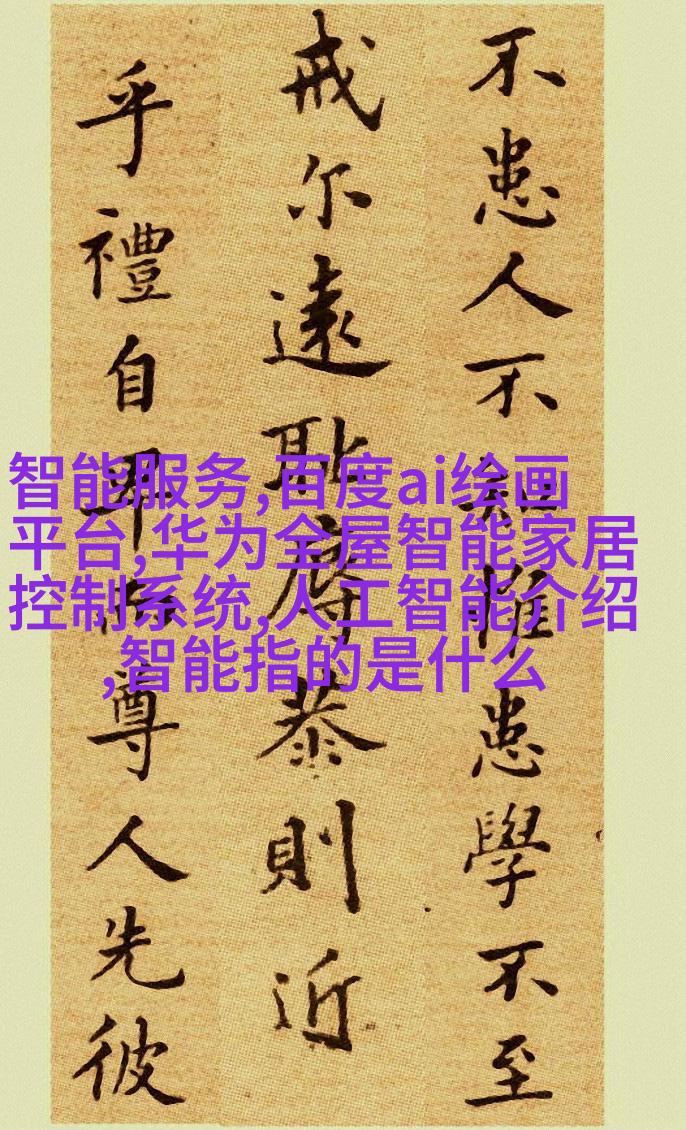 不患人不知惟患學不至
戒尔遠耻辱恭則近
乎禮自卑尊人先彼
智能服务,百度ai绘画
平台,华为全屋智能家居
控制系统,人工智能介绍
,智能指的是什么